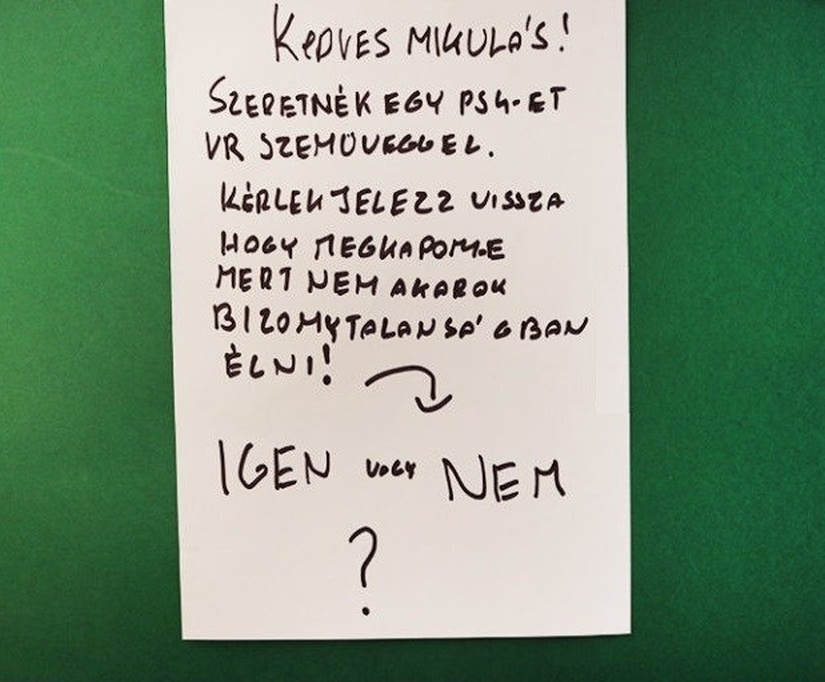 KEDVES MIKULÁS!
SZERETNÉK EGY PS4-ET
VR SZEMÜVEGGEL.
KÉRLEK JELEZZ VISSZA
HOGY MEGKAPOM-E
MERT NEM AKAROK
BIZOMYTALANSÁGBAN
ÉLNI!
IGEN VAGY NEM
?